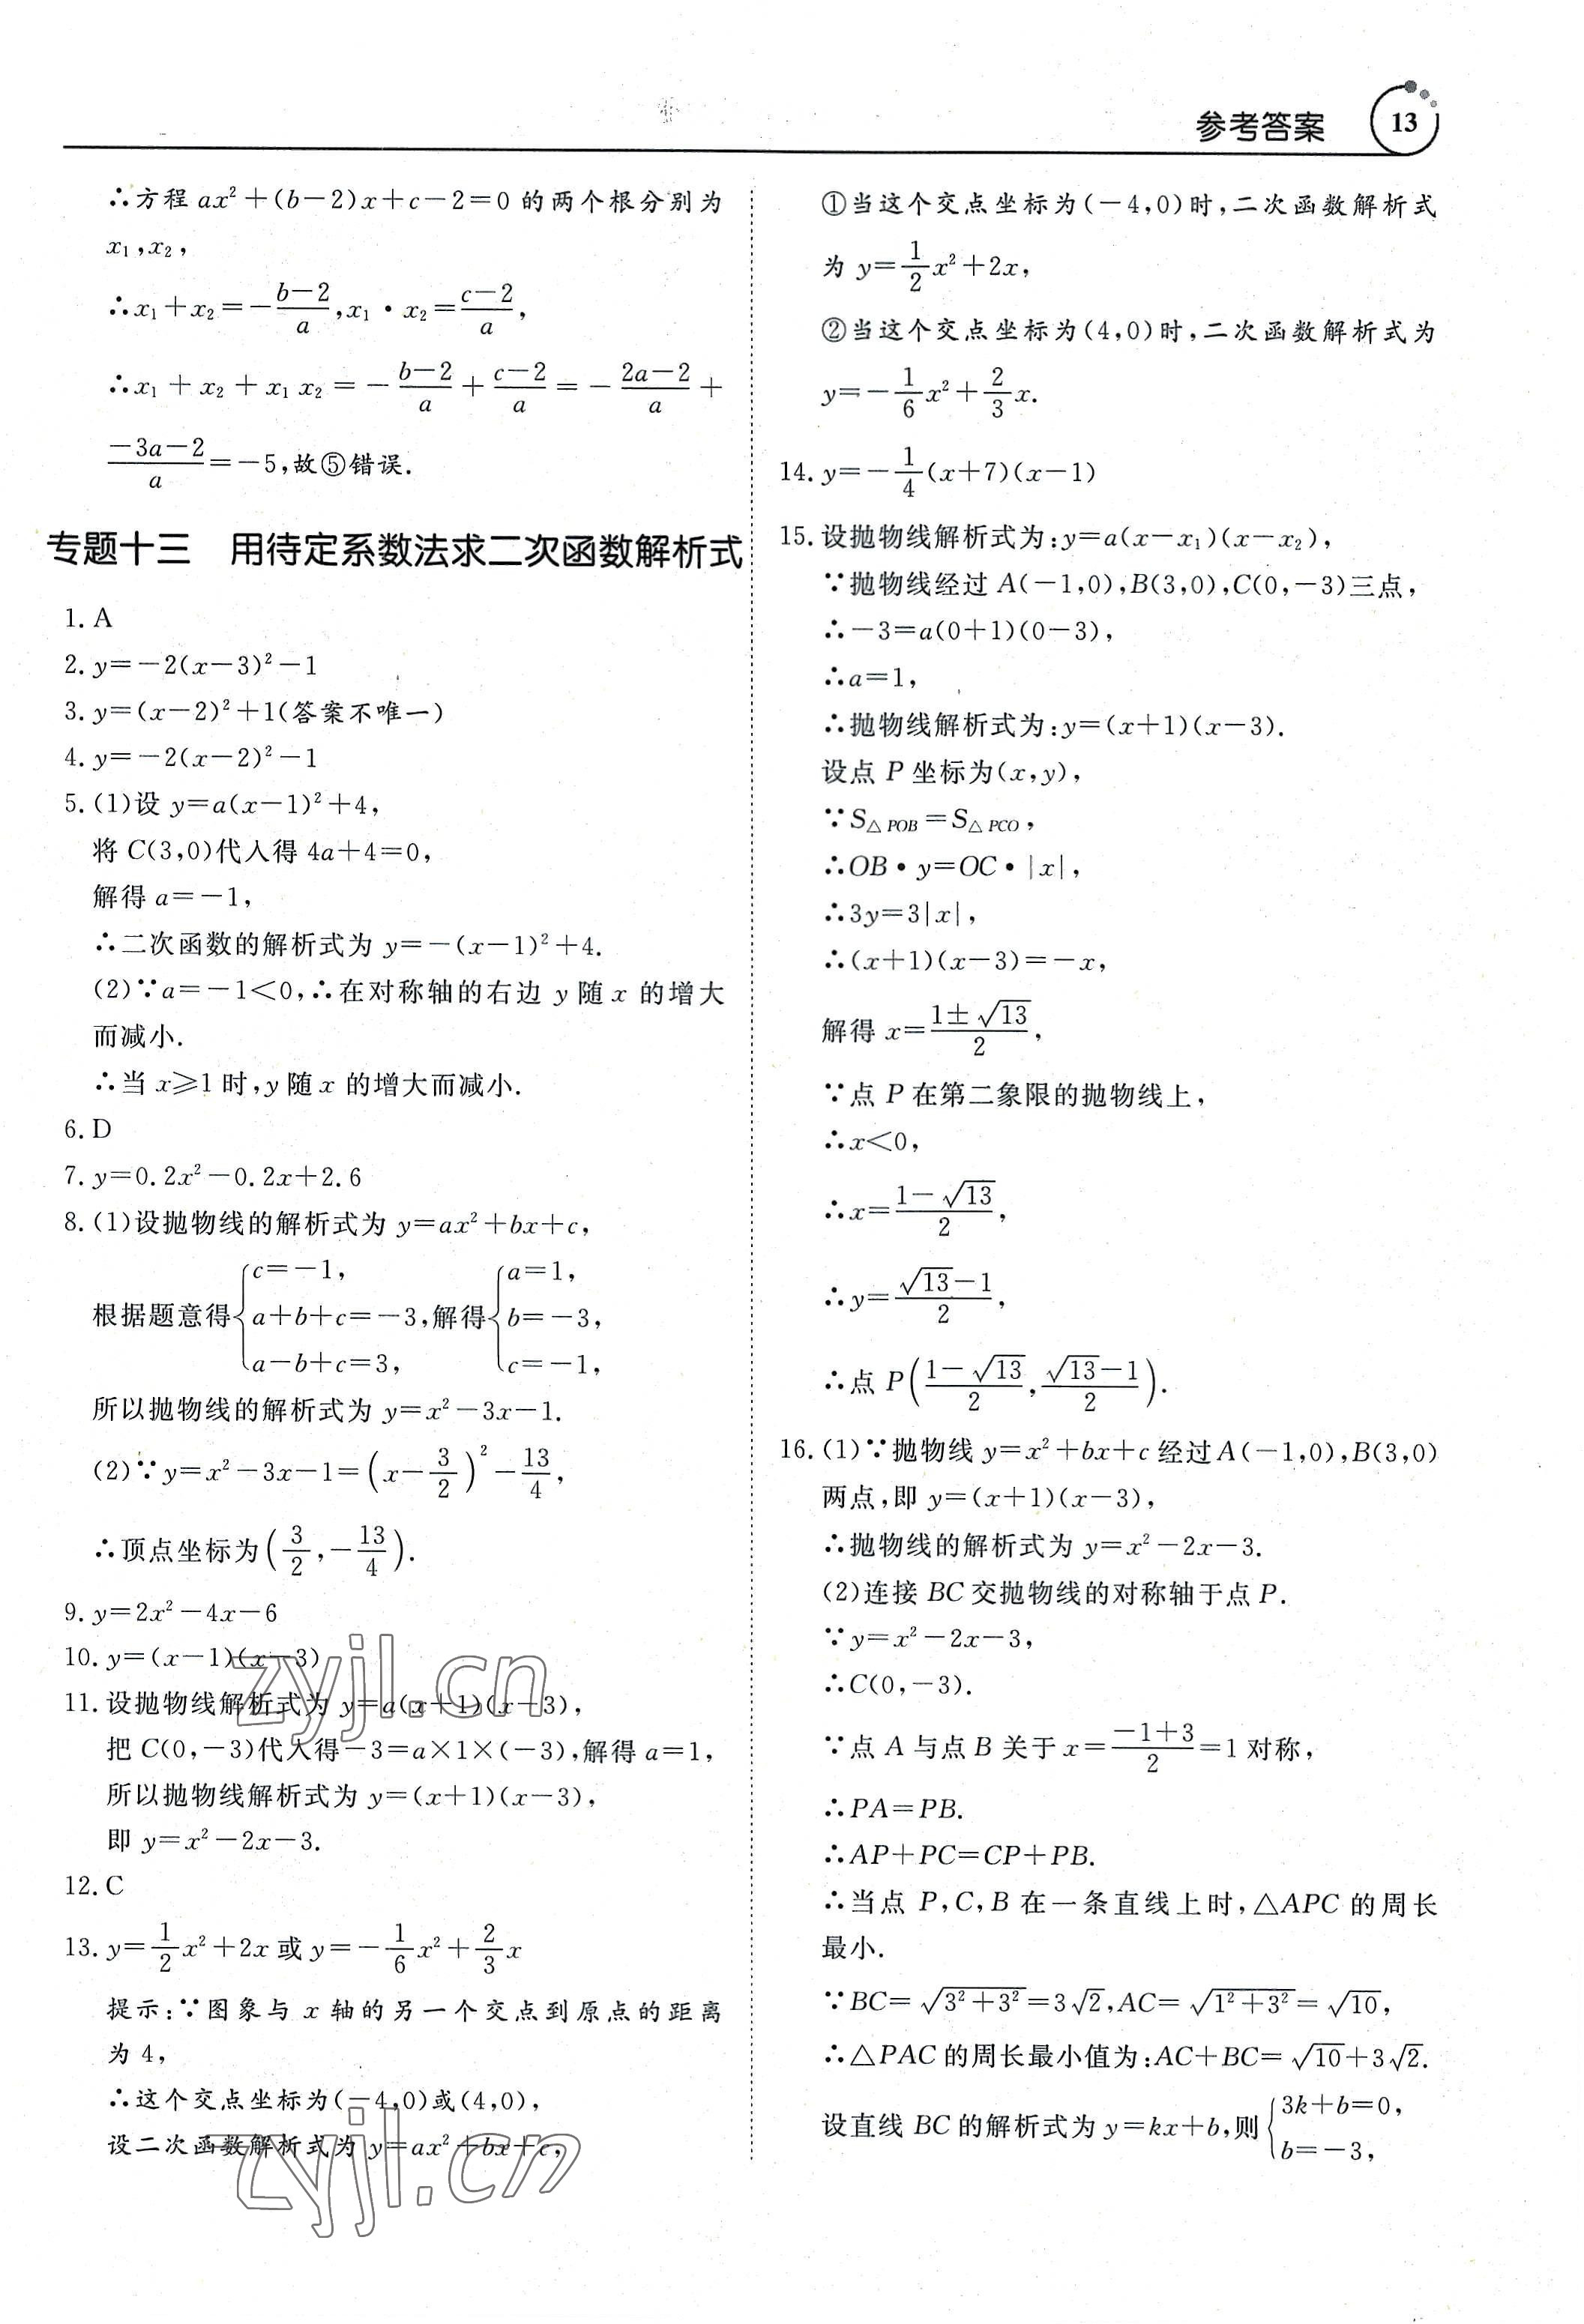 参考答案 13
∴方程 ax²+(b-2)x+c-2=0 的两个根分别为
x₁,x₂,
∴x₁+x₂=-\frac{b-2}{a},x₁·x₂=\frac{c-2}{a},
∴x₁+x₂+x₁x₂=-\frac{b-2}{a}+\frac{c-2}{a}=-\frac{2a-2}{a}+
\frac{-3a-2}{a}=-5,故⑤错误.
专题十三 用待定系数法求二次函数解析式
1. A
2. y=-2(x-3)²-1
3. y=(x-2)²+1(答案不唯一)
4. y=-2(x-2)²-1
5. (1)设 y=a(x-1)²+4,
将 C(3,0)代入得 4a+4=0,
解得 a=-1,
∴二次函数的解析式为 y=-(x-1)²+4.
(2)∵a=-1<0,∴在对称轴的右边 y 随 x 的增大
而减小.
∴当 x⩾1 时,y 随 x 的增大而减小.
6. D
7. y=0.2x²-0.2x+2.6
8. (1)设抛物线的解析式为 y=ax²+bx+c,
根据题意得{c=-1, a+b+c=-3, a-b+c=3, 解得{a=1, b=-3, c=-1,
所以抛物线的解析式为 y=x²-3x-1.
(2)∵y=x²-3x-1=(x-\frac{3}{2})²-\frac{13}{4},
∴顶点坐标为(\frac{3}{2},-\frac{13}{4}).
9. y=2x²-4x-6
10. y=(x-1)(x-3)
11. 设抛物线解析式为 y=a(x+1)(x-3),
把 C(0,-3)代入得-3=a×1×(-3),解得 a=1,
所以抛物线解析式为 y=(x+1)(x-3),
即 y=x²-2x-3.
12. C
13. y=\frac{1}{2}x²+2x 或 y=-\frac{1}{6}x²+\frac{2}{3}x
提示:∵图象与 x 轴的另一个交点到原点的距离
为 4,
∴这个交点坐标为(-4,0)或(4,0),
设二次函数解析式为 y=ax²+bx+c,
①当这个交点坐标为(-4,0)时,二次函数解析式
为 y=\frac{1}{2}x²+2x,
②当这个交点坐标为(4,0)时,二次函数解析式为
y=-\frac{1}{6}x²+\frac{2}{3}x.
14. y=-\frac{1}{4}(x+7)(x-1)
15. 设抛物线解析式为:y=a(x-x₁)(x-x₂),
∵抛物线经过 A(-1,0),B(3,0),C(0,-3)三点,
∴-3=a(0+1)(0-3),
∴a=1,
∴抛物线解析式为:y=(x+1)(x-3).
设点 P 坐标为(x,y),
∵S△POB=S△PCO,
∴OB·y=OC·|x|,
∴3y=3|x|,
∴(x+1)(x-3)=-x,
解得 x=\frac{1±√13}{2},
∵点 P 在第二象限的抛物线上,
∴x<0,
∴x=\frac{1-√13}{2},
∴y=\frac{√13-1}{2},
∴点 P(\frac{1-√13}{2},\frac{√13-1}{2}).
16. (1)∵抛物线 y=x²+bx+c 经过 A(-1,0),B(3,0)
两点,即 y=(x+1)(x-3),
∴抛物线的解析式为 y=x²-2x-3.
(2)连接 BC 交抛物线的对称轴于点 P.
∵y=x²-2x-3,
∴C(0,-3).
∵点 A 与点 B 关于 x=\frac{-1+3}{2}=1 对称,
∴PA=PB.
∴AP+PC=CP+PB.
∴当点 P,C,B 在一条直线上时,△APC 的周长
最小.
∵BC=√(3²+3²)=3√2,AC=√(1²+3²)=√10,
∴△PAC 的周长最小值为:AC+BC=√10+3√2.
设直线 BC 的解析式为 y=kx+b,则{3k+b=0, b=-3,
zyjl.cn
zyjl.cn